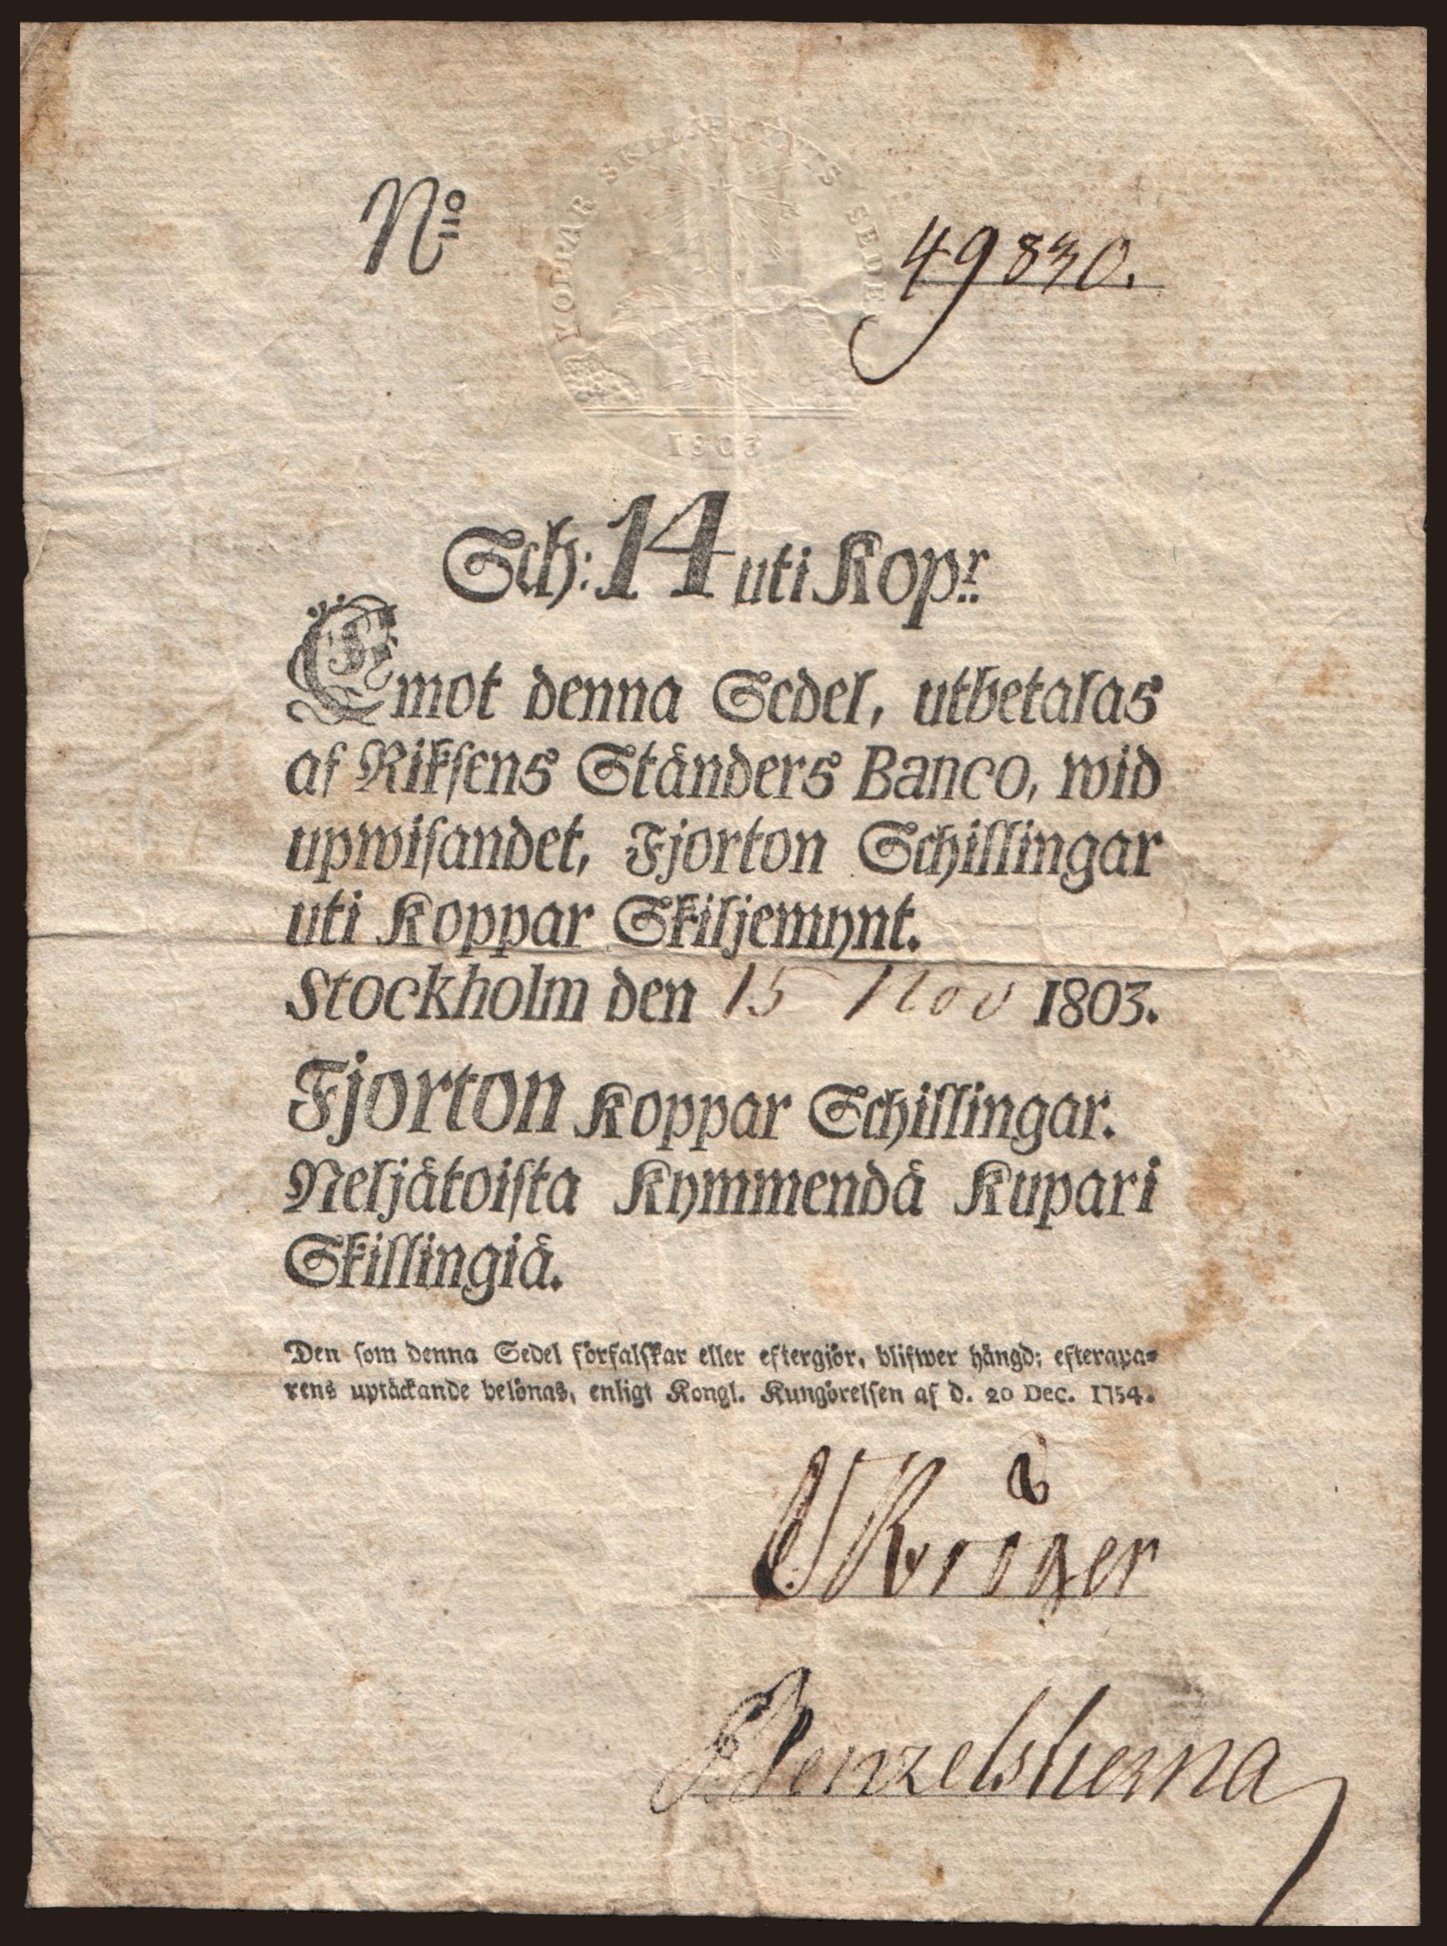 KOPPAR SKILJEMYNTS SEDEL
No 49830.
1803
Sch: 14 uti Kopr.
Emot denna Sedel, utbetalas
af Rikſens Ständers Banco, wid
upwiſandet, Fjorton Schillingar
uti Koppar Skiljemynt.
Stockholm den 15 Nov 1803.
Fjorton Koppar Schillingar.
Neljätoiſta Kymmendä Kupari
Skillingiä.
Den ſom denna Sedel förfalſkar eller eftergjör, blifwer hängd; efterapa=
rens uptäckande belönas, enligt Kongl. Kungörelſen af d. 20 Dec. 1754.
Kröger
Benzelstierna